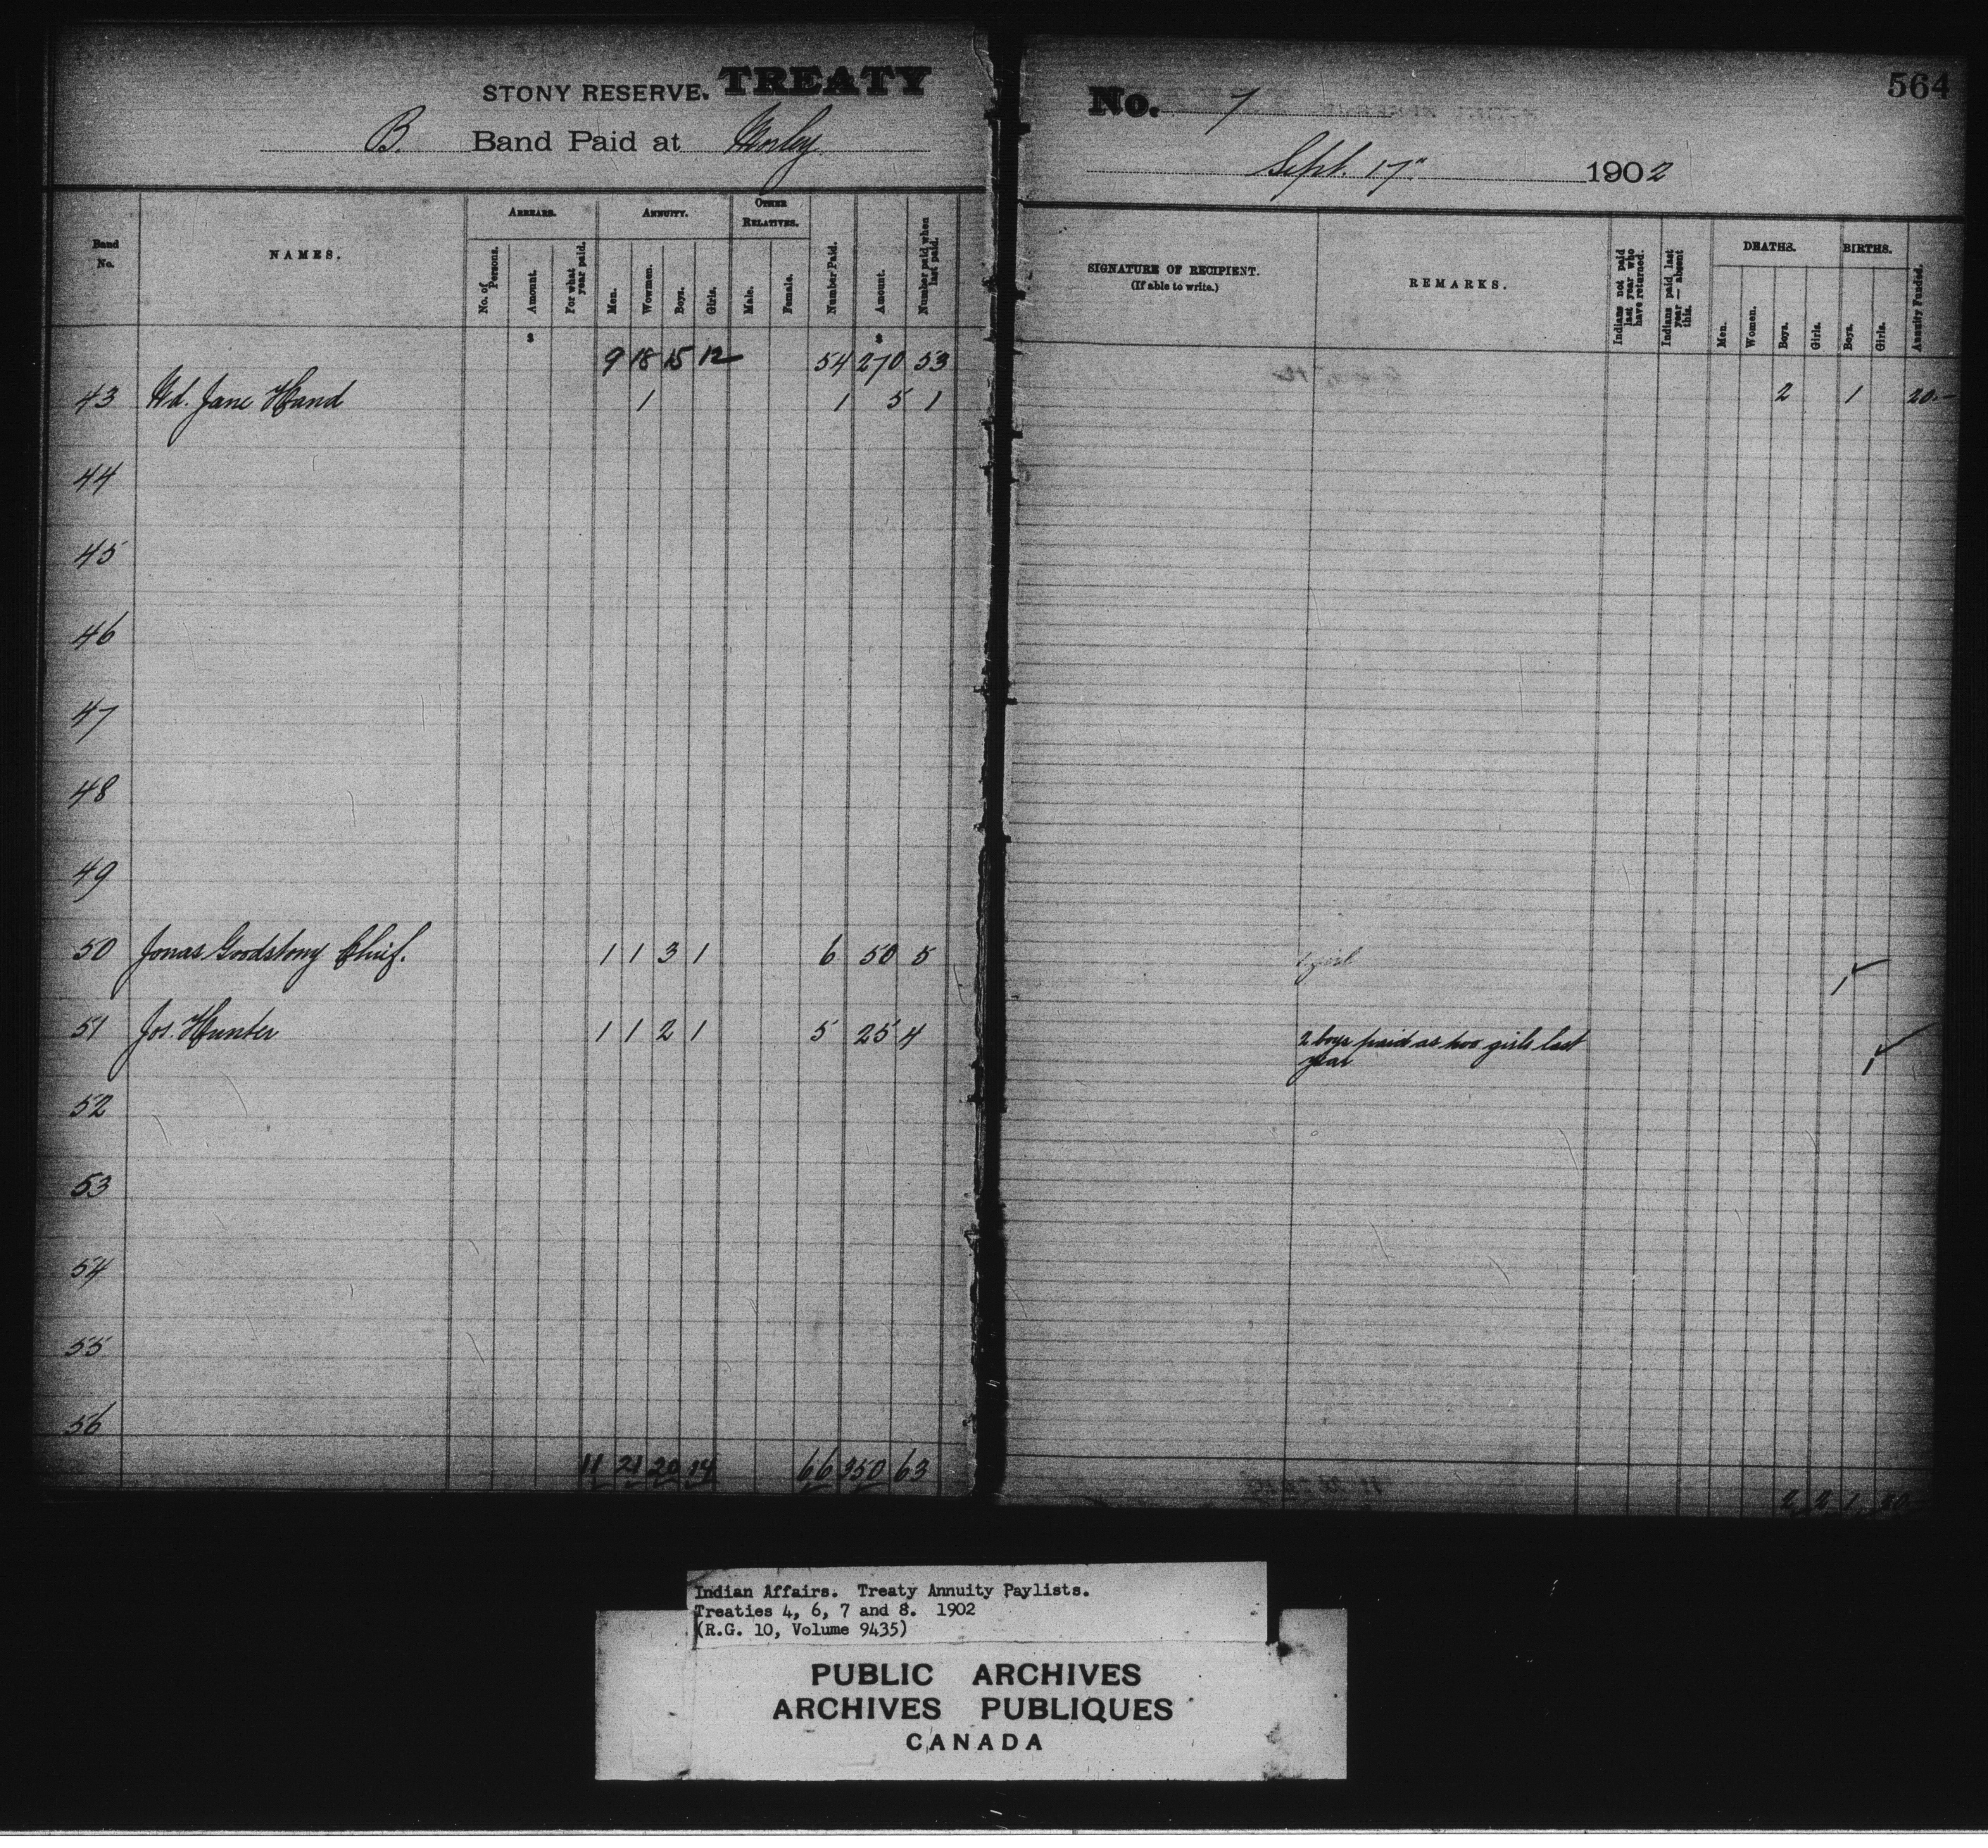 STONY RESERVE. TREATY
B. Band Paid at Morley
Band No. NAMES. ARREARS. ANNUITY. OTHER RELATIVES.
No. of Persons. Amount. For what year paid. Men. Wowmen. Boys. Girls. Male. Female. Number Paid. Amount. Number paid when last paid.
$ $
9 18 15 12 54 270 53
43 Wd. Jane Hand 1 1 5 1
44
45
46
47
48
49
50 Jonas Goodstony Chief. 1 1 3 1 6 50 5
51 Jos. Hunter 1 1 2 1 5 25 4
52
53
54
55
56
11 21 20 14 66 350 63
564
No. 7
Sept. 17" 1902
SIGNATURE OF RECIPIENT. (If able to write.) REMARKS. Indians not paid last year who have returned. Indians paid last year — absent this. DEATHS. BIRTHS. Annuity Funded.
Men. Women. Boys. Girls. Boys. Girls.
2 1 20.-
1 girl 1
2 boys paid as two girls last
year 1
2 2 1 20
Indian Affairs. Treaty Annuity Paylists.
Treaties 4, 6, 7 and 8. 1902
(R.G. 10, Volume 9435)
PUBLIC ARCHIVES
ARCHIVES PUBLIQUES
CANADA